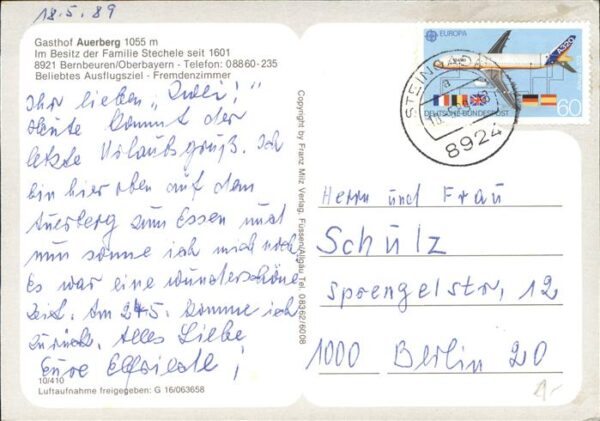 18.5.89
Gasthof Auerberg 1055 m
Im Besitz der Familie Stechele seit 1601
8921 Bernbeuren/Oberbayern - Telefon: 08860-235
Beliebtes Ausflugsziel - Fremdenzimmer
Ihr lieben „Zwei"!
Heute kommt der
letzte Urlaubsgruß. Ich
bin hier oben auf dem
Auerberg zum Essen und
nun sonne ich mich noch
Es war eine wunderschöne
Zeit. Am 24.5. komme ich
zurück. Alles Liebe
Eure Elfriede!
10/410
Luftaufnahme freigegeben: G 16/063658
Copyright by Franz Milz Verlag, Füssen/Allgäu Tel. 08362/6008
EUROPA
A320
DEUTSCHE BUNDESPOST
60
STEINGADEN
8924
Herrn und Frau
Schulz
Sprengelstr. 12
1000 Berlin 20